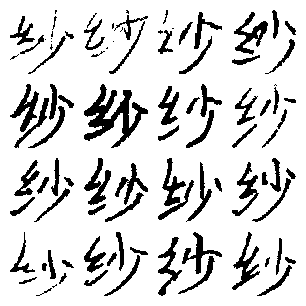 纱纱纱纱
纱纱纱纱
纱纱纱纱
纱纱纱纱